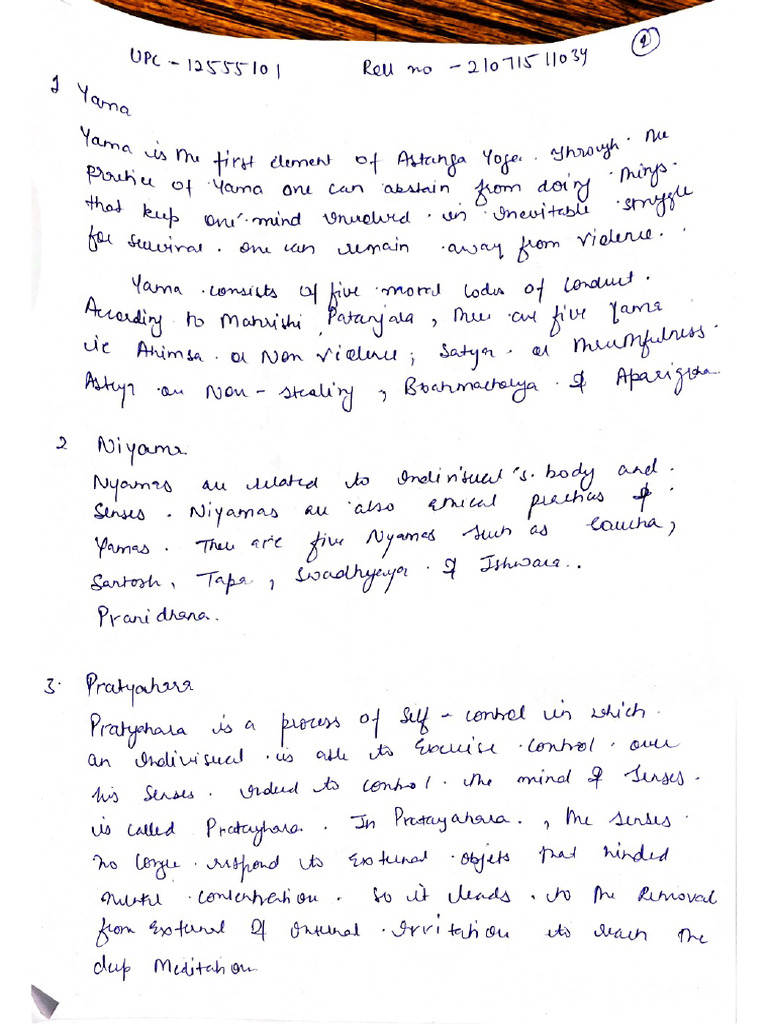 UPC - 12555101 Roll no - 21071511034 1
1 Yama
Yama is the first element of Astanga Yoga. Through the
practice of Yama one can abstain from doing things.
that keep one mind involved in inevitable struggle
for survival. one can remain away from violence.
Yama consists of five moral codes of conduct.
According to Mahrishi Patanjala, there are five Yama
i.e Ahimsa or Non violence; Satya or
Astya or Non-stealing, &
2 Niyama
Nyamas are related to body and
senses. Niyamas are also ethical practices &
Yamas. There are five Nyamas such as
Santosh, Tapa, & Ishwara..
Pranidhana.
3. Pratyahara
Pratyahara is a process of self-control in which
an indivisual is able to exercise control over
his senses. to control the mind & senses.
is called . In Pratayahara, the senses
no respond to external objets that
concentration. So it leads to the
from external & internal irritation to reach the
deep Meditation